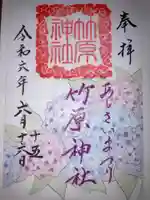 奉拝
あじさいまつり
竹原神社
竹原神社
令和六年六月十五日